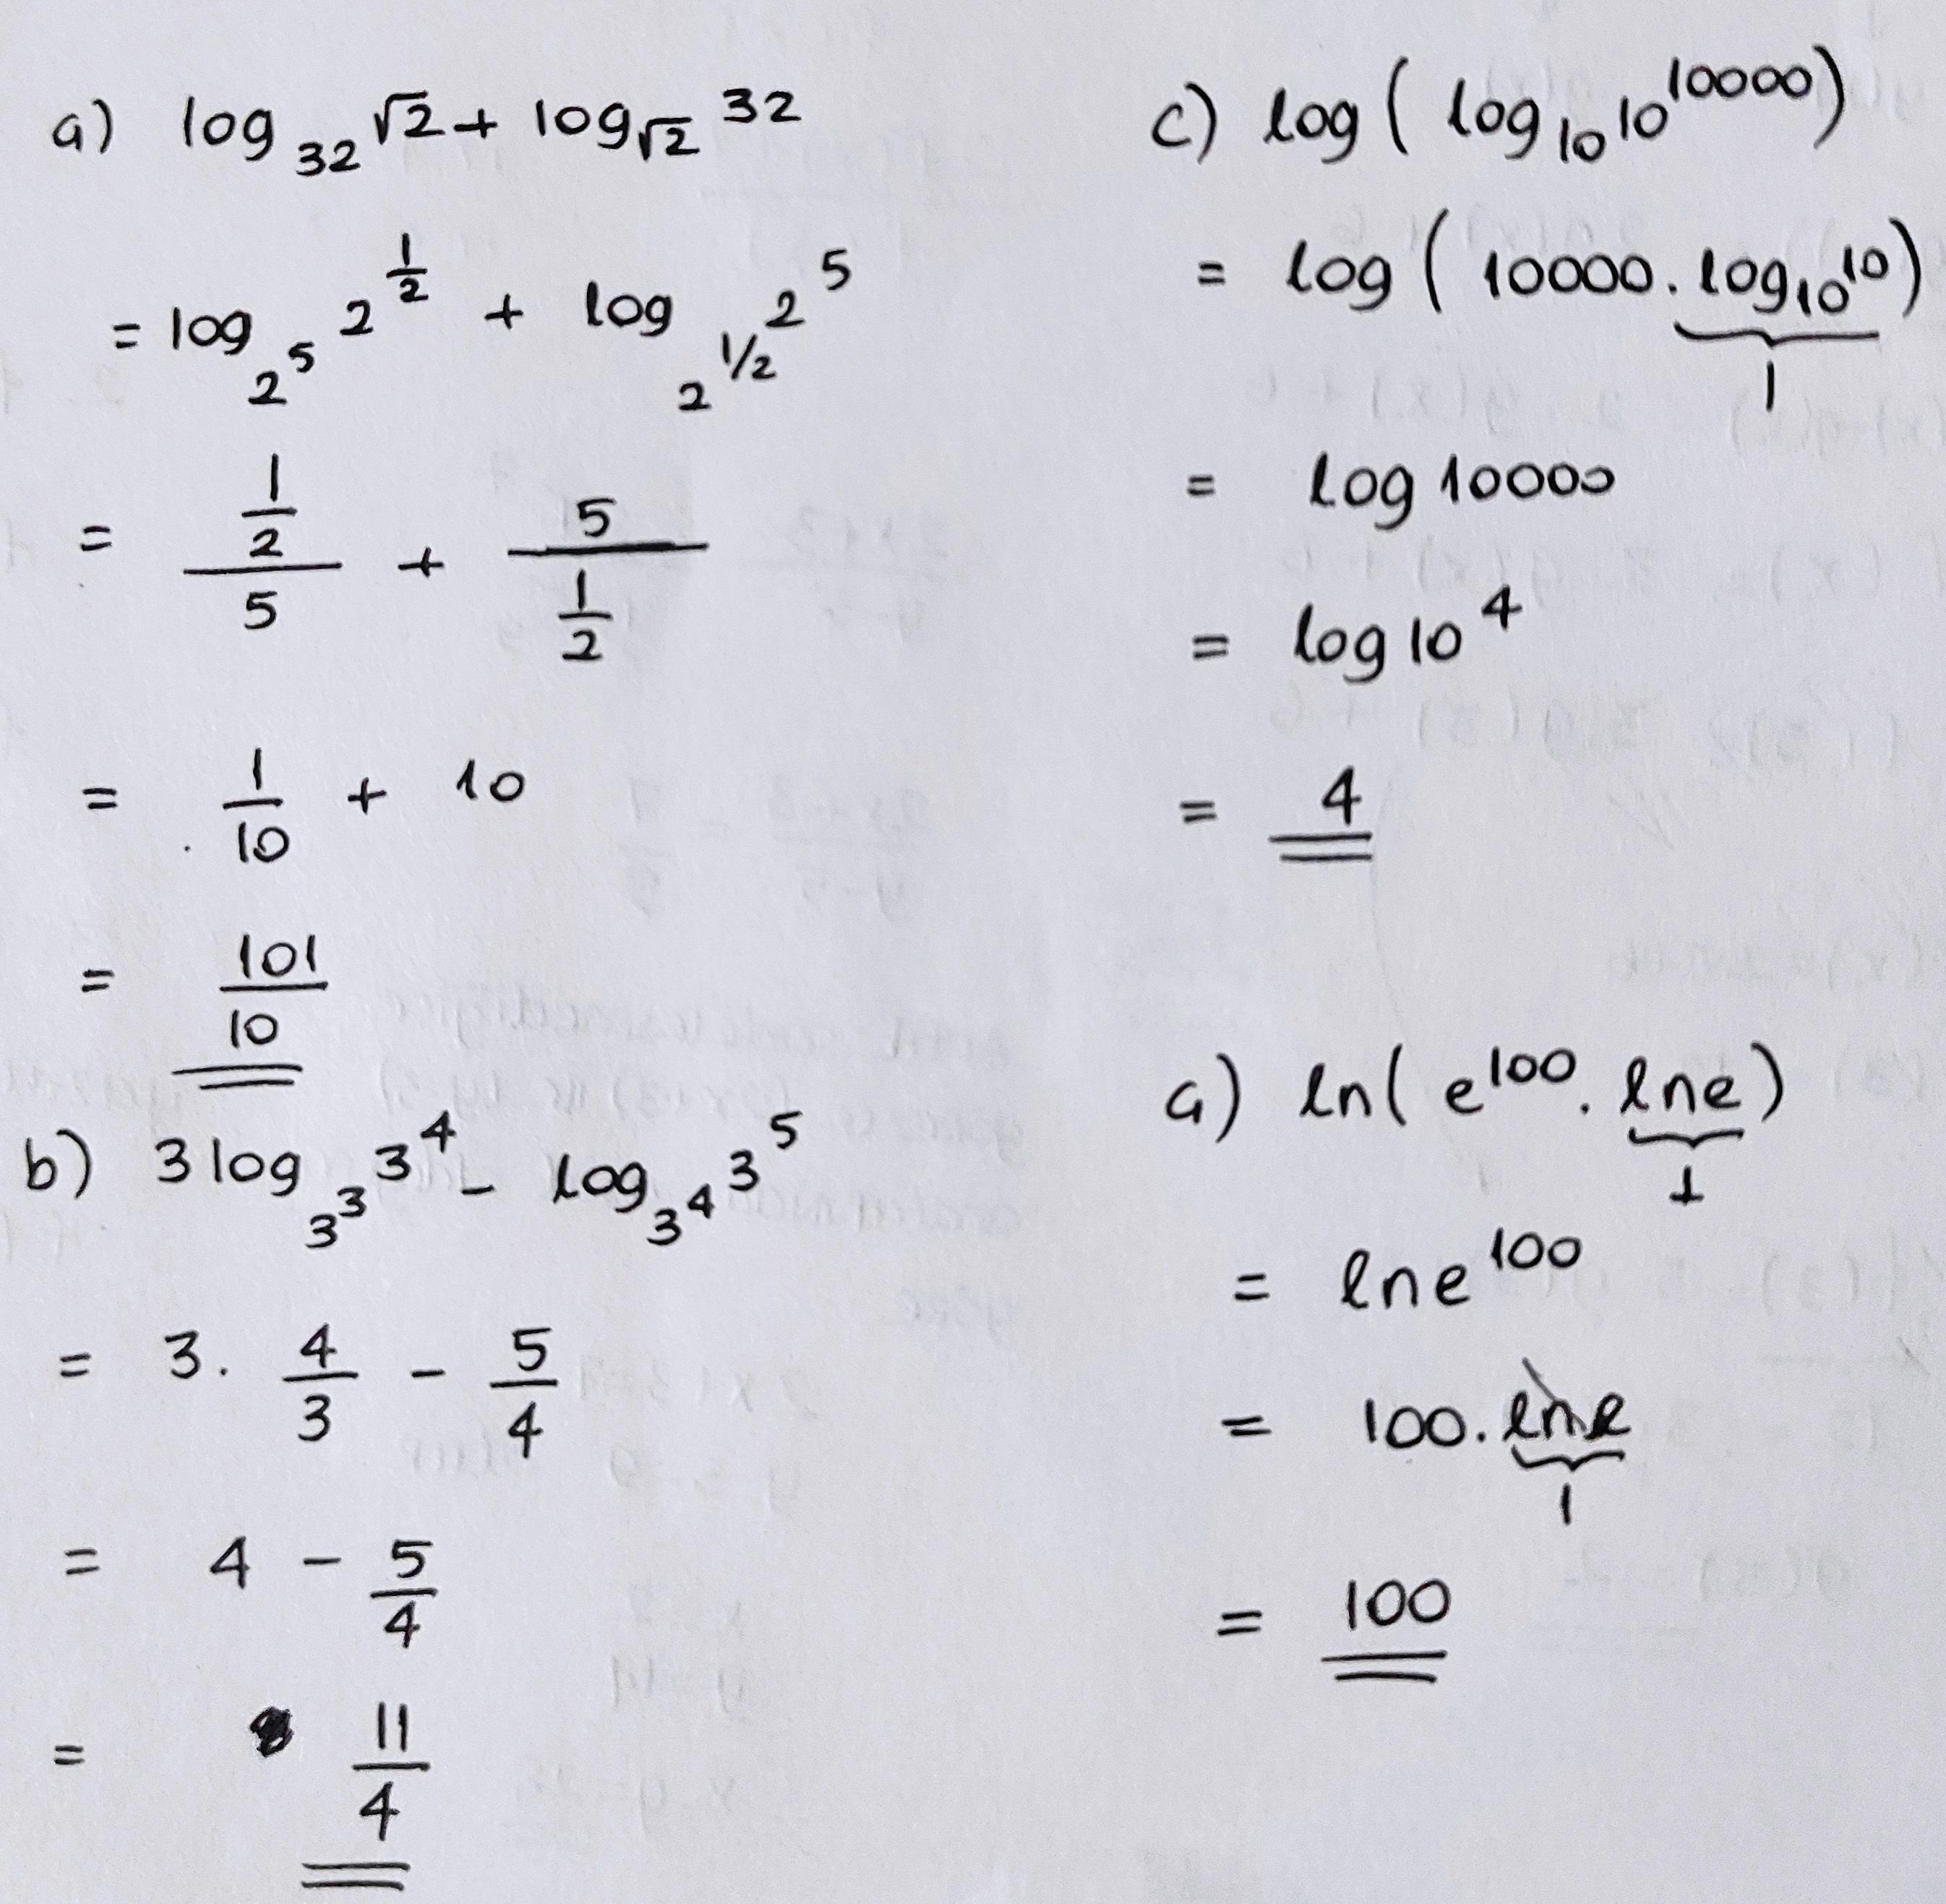 a) log₃₂ √2 + log_√2 32
= log_2⁵ 2^(1/2) + log_2^(1/2) 2⁵
= (1/2)/5 + 5/(1/2)
= 1/10 + 10
= 101/10
b) 3 log_3³ 3⁴ - log_3⁴ 3⁵
= 3 . 4/3 - 5/4
= 4 - 5/4
= 11/4
c) log ( log₁₀ 10^10000 )
= log ( 10000 . log₁₀10 )
1
= log 10000
= log 10⁴
= 4
a) ln( e^100 . lne )
1
= lne^100
= 100 . lne
1
= 100